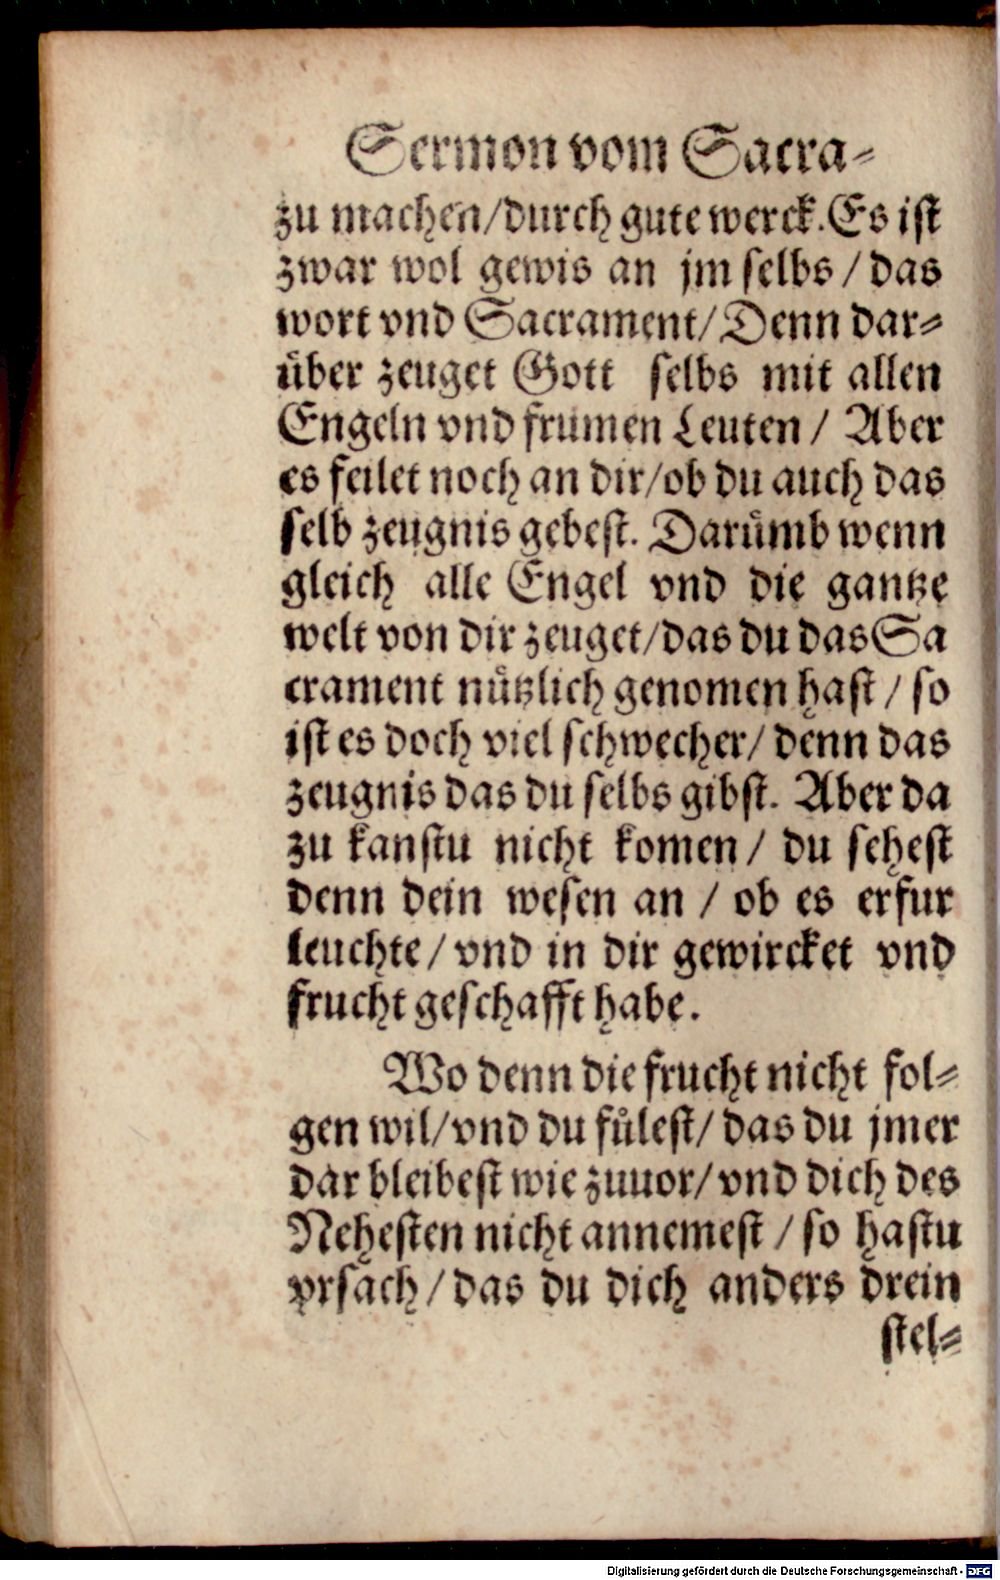 Sermon vom Sacra-
zu machen/durch gute werck. Es ist
zwar wol gewis an jm selbs / das
wort vnd Sacrament/ Denn dar-
uͤber zeuget Gott selbs mit allen
Engeln vnd frumen Leuten / Aber
es feilet noch an dir/ob du auch das
selb zeugnis gebest. Daruͤmb wenn
gleich alle Engel vnd die gantze
welt von dir zeuget/das du das Sa
crament nuͤtzlich genomen hast / so
ist es doch viel schwecher/ denn das
zeugnis das du selbs gibst. Aber da
zu kanstu nicht komen / du sehest
denn dein wesen an / ob es erfur
leuchte / vnd in dir gewircket vnd
frucht geschafft habe.
Wo denn die frucht nicht fol-
gen wil/vnd du fuͤlest/ das du jmer
dar bleibest wie zuuor/ vnd dich des
Nehesten nicht annemest / so hastu
vrsach / das du dich anders drein
stel-
Digitalisierung gefördert durch die Deutsche Forschungsgemeinschaft - DFG